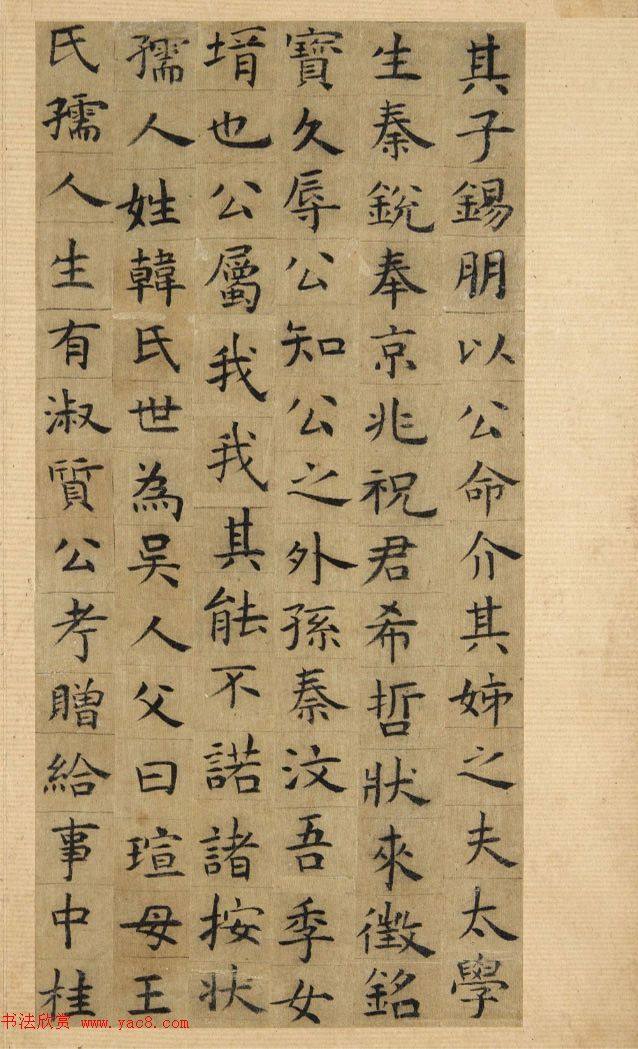 其子錫朋以公命介其姊之夫太學
生秦銳奉京兆祝君希哲狀來徵銘
寶久辱公知公之外孫秦汶吾季女
壻也公屬我我其能不諾諸按狀
孺人姓韓氏世為吳人父曰瑄母王
氏孺人生有淑質公考贈給事中桂
书法欣赏 www.yac8.com